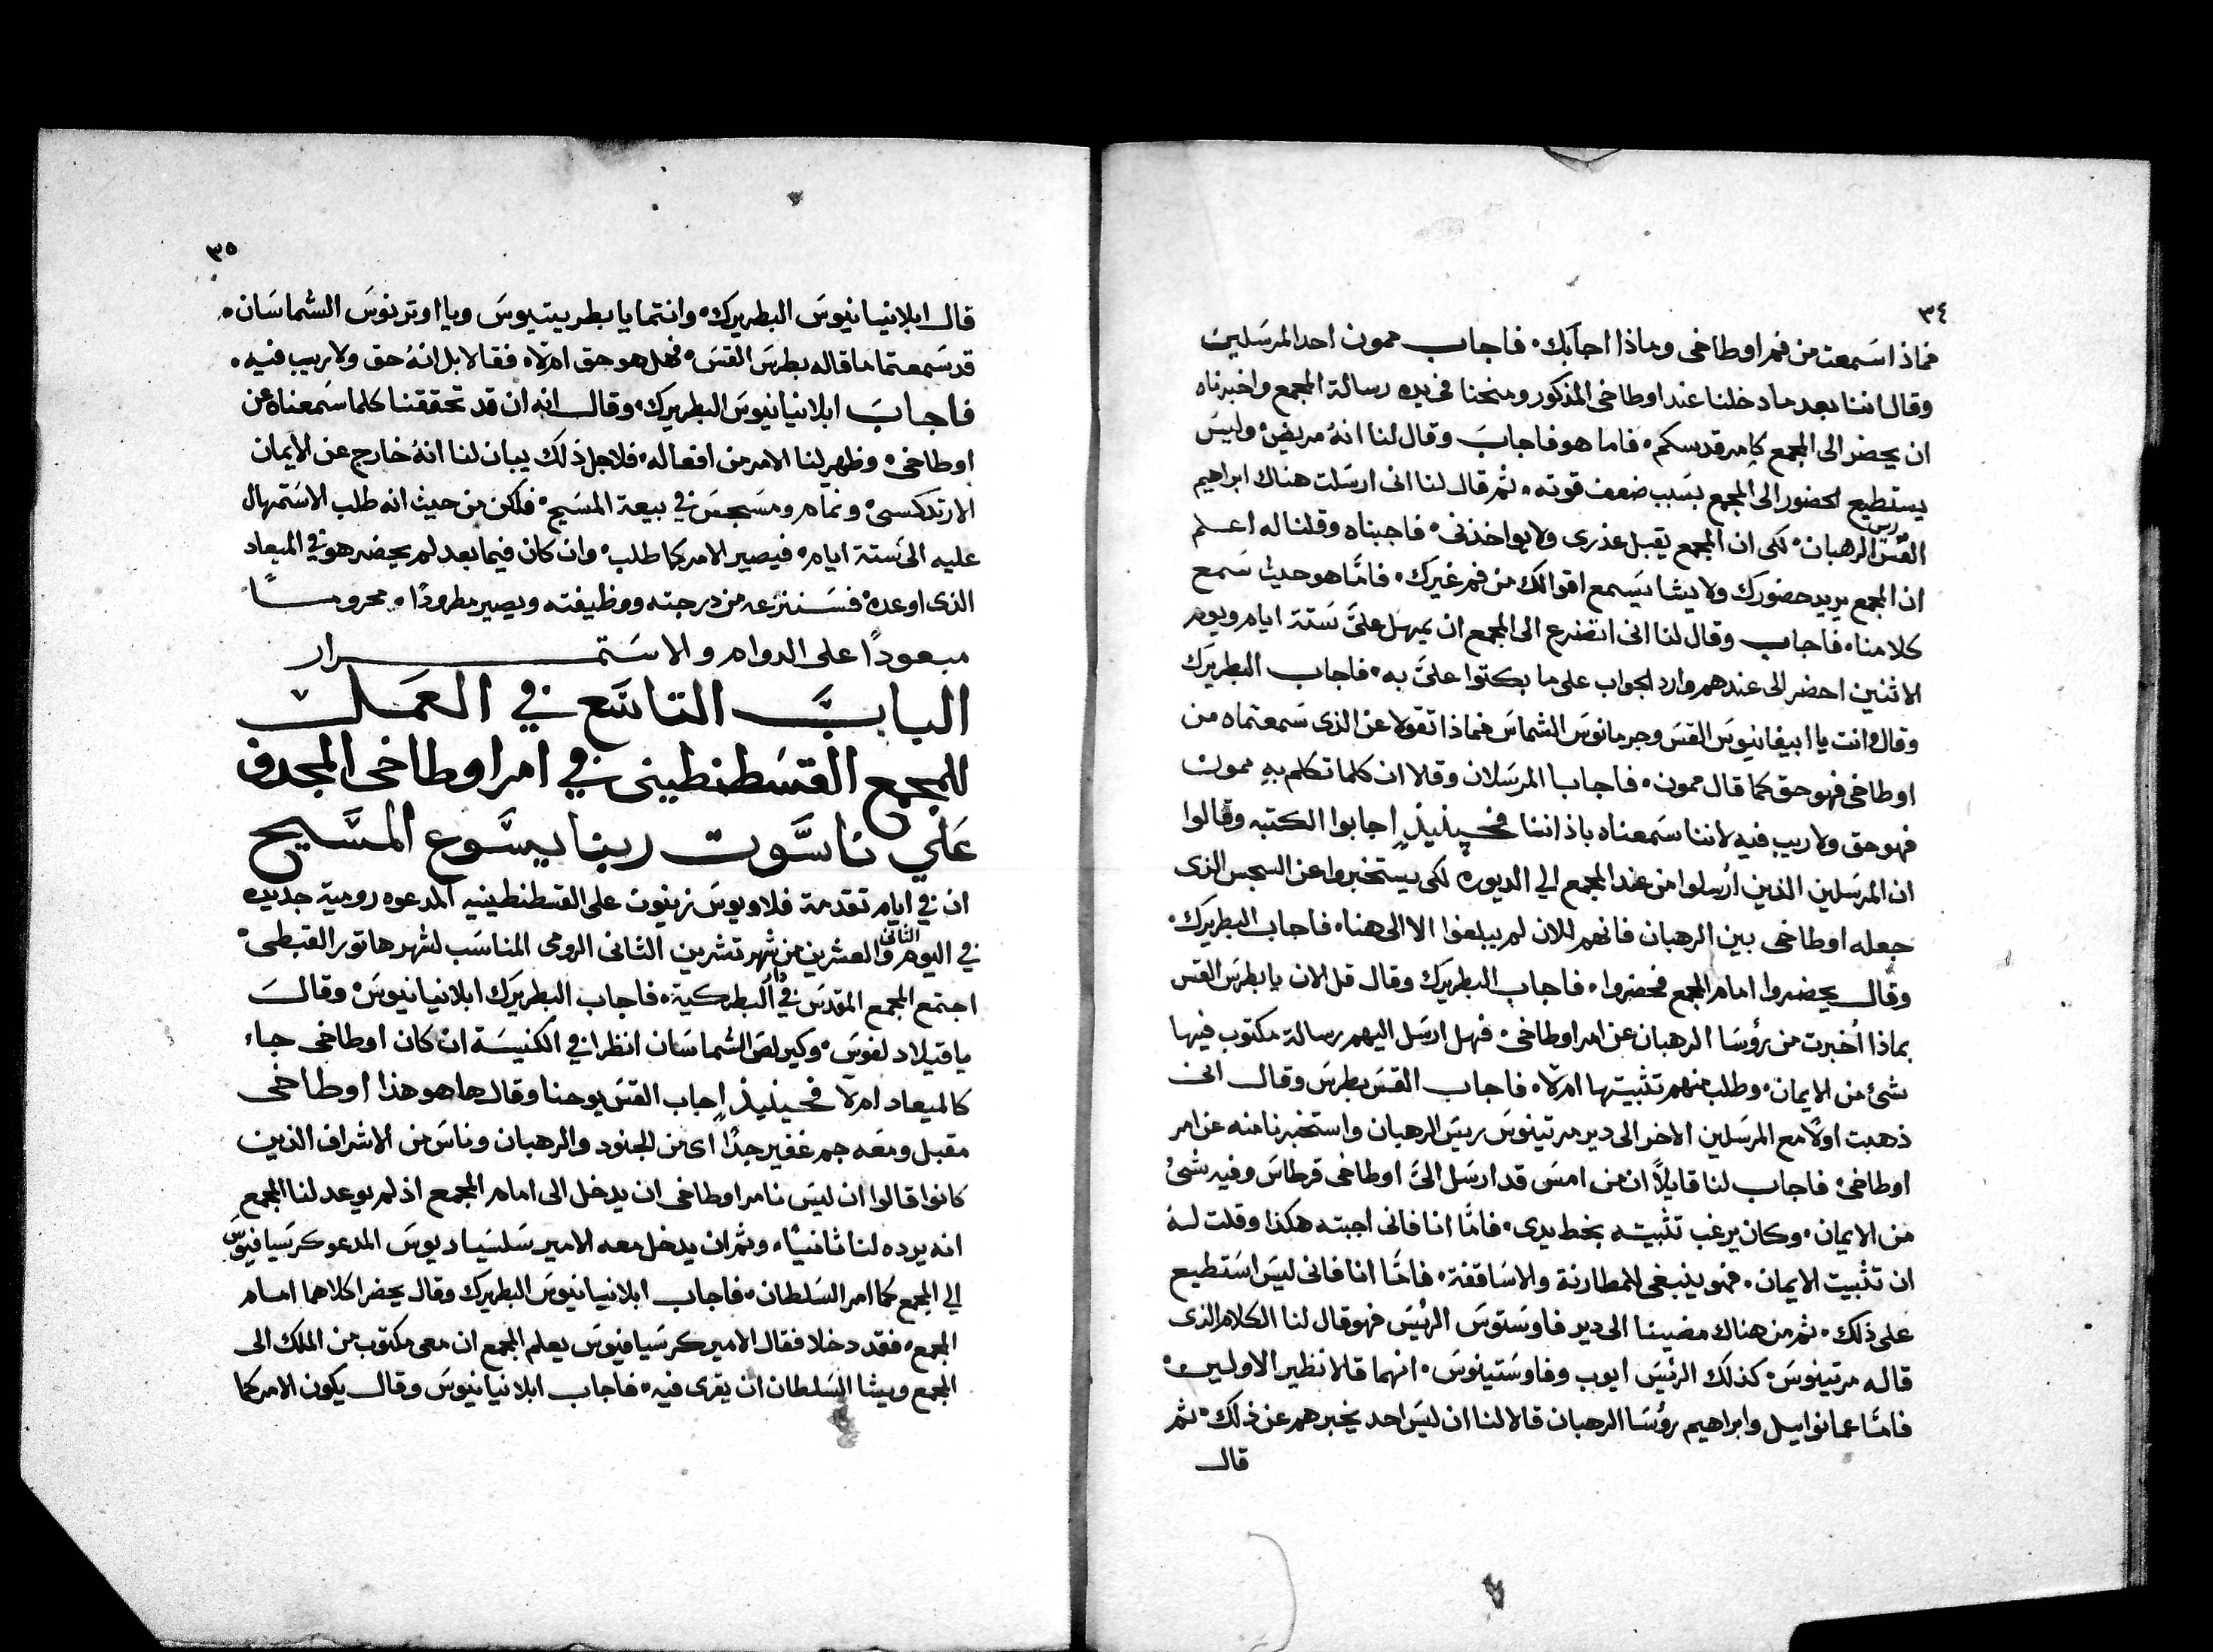 ٣٤
فماذا سمعت من فم اوطاخى وماذا اجابك. فاجاب ممون احد المرسلين
وقال اننا بعد ما دخلنا عند اوطاخى المذكور ومنحنا فى يده رسالة المجمع واخبرناه
ان يحضر الى المجمع كامر قدسكم. فاما هو فاجاب وقال لنا انه مريض وليس
يستطيع الحضور الى المجمع بسبب ضعف قوته. ثم قال لنا انى ارسلت هناك ابراهيم
القس ريس الرهبان. لكى ان المجمع يقبل عذرى ولا يواخذنى. فاجبناه وقلنا له اعلم
ان المجمع يريد حضورك ولا يشا يسمع اقوالك من فم غيرك. فامّا هو حيث سمع
كلامنا. فاجاب وقال لنا انى اتضرع الى المجمع ان يمهل علىَّ ستة ايام ويوم
الاثنين احضر الى عندهم وارد الجواب على ما بكتوا علىَّ به. فاجاب البطريرك
وقال وانت يا ابيفانيوس القس وجرمانوس الشماس فماذا تقولا عن الذى سمعتماه من
اوطاخى فهو حق كما قال ممون. فاجابا المرسلان وقالا ان كلما تكلم به ممون
فهو حق ولا ريب فيه لاننا سمعناه باذاننا فحينيذٍ اجابوا الكتبه وقالوا
ان المرسلين الذين ارُسلوا من عند المجمع الي الديوره لكى يستخبروا عن السجس الذى
جعله اوطاخى بين الرهبان فانهم للان لم يبلغوا الا الى هنا. فاجاب البطريرك.
وقال يحضروا امام المجمع فحضروا. فاجاب البطريرك وقال قل الان يا بطرس القس
بماذا اُخبرت من رؤسا الرهبان عن امر اوطاخى. فهل ارسل اليهم رسالة مكتوب فيها
شئ من الايمان. وطلب منهم تثبيتها ام لا. فاجاب القس بطرس وقال انى
ذهبت اولاً مع المرسلين الاخر الى دير مرتينوس ريس الرهبان واستخبرنا منه عن امر
اوطاخى. فاجاب لنا قايلاً ان من امس قد ارسل الىَّ اوطاخى قرطاس وفيه شئ
من الايمان. وكان يرغب تثبيته بخط يدى. فامّا انا فانى اجبته هكذا وقلت له
ان تثبيت الايمان. فهو ينبغى للمطارنة والاساقفة. فامّا انا فانى ليس استطيع
على ذلك. ثم من هناك مضينا الى دير فاوستوس الرئيس فهو قال لنا الكلام الذى
قاله مرتينوس. كذلك الرئيس ايوب وفاوستينوس. انهما قالا نظير الاولين.
فامّا عمانوايل وابراهيم رؤسا الرهبان قالا لنا ان ليس احد يخبرهم عن ذلك. ثم
قال
٣٥
قال ابلانيانيوس البطريرك. وانتما يا بطريتيوس ويا اوترنوس الشماسان.
قد سمعتما ما قاله بطرس القس. فهل هو حق ام لا. فقالا بل انهُ حق ولا ريب فيه.
فاجاب ابلانيانيوس البطريرك. وقال انه ان قد تحققنا كلما سمعناه عن
اوطاخى. وظهر لنا الامر من افعاله. فلاجل ذلك يبان لنا انهُ خارج عن الايمان
الارتدكسى. ونمام ومسجس في بيعة المسيح. فلكن من حيث انه طلب الاستمهال
عليه الى ستة ايام. فيصير الامر كما طلب. وان كان فيما بعد لم يحضر هو في الميعاد
الذى اوعده. فسننزعه من درجته ووظيفته ويصير مطرودًا. محرومًا
مبعودًا على الدوام والاستمرار
الباب التاسع في العمل
للمجمع القسطنطينى في امر اوطاخى المجدف
علي ناسوت ربنا يسوع المسيح
ان في ايام تقدمة فلاويوس زينون على القسطنطينيه المدعوه رومية جديده
في اليوم الثانى والعشرين من شهر تشرين الثانى الرومى المناسب لشهر هاتور القبطى.
اجتمع المجمع المقدس في دار البطركية. فاجاب البطريرك ابلانيانيوس. وقال
يا فتيلادلفوس. وكيرلص الشماسان انظرا في الكنيسة ان كان اوطاخى جاء
كالميعاد ام لا فحينيذٍ اجاب القس يوحنا وقال ها هوذا اوطاخى
مقبل ومعه جم غفير جدًا اى من الجنود والرهبان وناس من الاشراف الذين
كانوا قالوا ان ليس نامر اوطاخى ان يدخل الى امام المجمع اذ لم يوعد لنا المجمع
انه يرده لنا ثانيًا. وثم ان يدخل معه الامير سلسياديوس المدعو كرسيافيوس
الي المجمع كما امر السلطان. فاجاب ابلانيانيوس البطريرك وقال يحضرا كلاهما امام
المجمع. فقد دخلا فقال الامير كرسيافيوس يعلم المجمع ان معى مكتوب من الملك الى
المجمع ويشا السلطان ان يقرى فيه. فاجاب ابلانيانيوس وقال يكون الامر كما